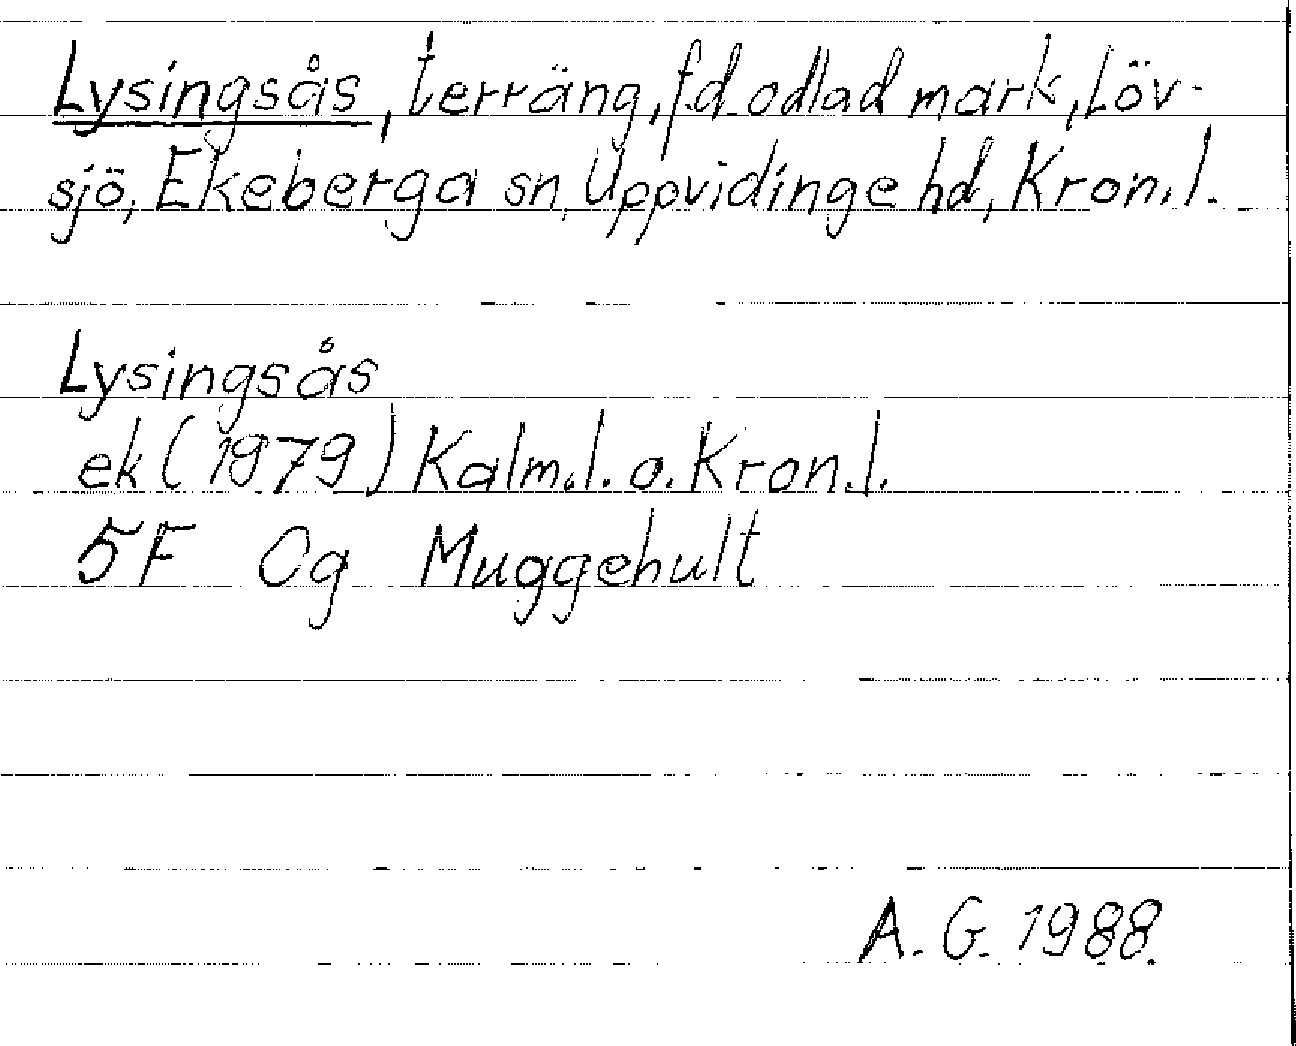 Lysingsås, terräng, f.d. odlad mark, Löv-
sjö, Ekeberga sn, Uppvidinge hd, Kron.l.
Lysingsås
ek (1979) Kalm.l. o. Kron.l.
5F 0g Muggehult
A. G. 1988.